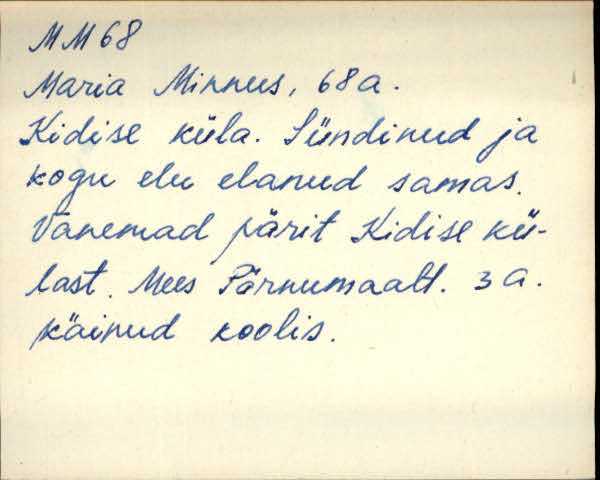 MM68
Maria Minnus, 68a.
Kidise küla. Sündinud ja
kogu elu elanud samas.
Vanemad pärit Kidise kü-
last. Mees Pärnumaalt. 3 a.
käinud koolis.